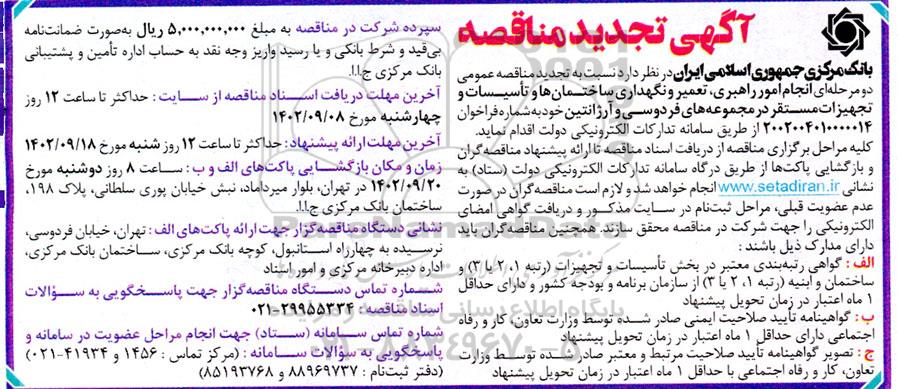 آگهی تجدید مناقصه
بانک مرکزی جمهوری اسلامی ایران در نظر دارد نسبت به تجدید مناقصه عمومی
دو مرحله‌ای انجام امور راهبری، تعمیر و نگهداری ساختمان‌ها و تأسیسات و
تجهیزات مستقر در مجموعه‌های فردوسی و آرژانتین خود به شماره فراخوان
۲۰۰۲۰۰۴۰۱۰۰۰۰۰۱۴ از طریق سامانه تدارکات الکترونیکی دولت اقدام نماید.
کلیه مراحل برگزاری مناقصه از دریافت اسناد مناقصه تا ارائه پیشنهاد مناقصه‌گران
و بازگشایی پاکت‌ها از طریق درگاه سامانه تدارکات الکترونیکی دولت (ستاد) به
نشانی www.setadiran.ir انجام خواهد شد و لازم است مناقصه‌گران در صورت
عدم عضویت قبلی، مراحل ثبت‌نام در سایت مذکور و دریافت گواهی امضای
الکترونیکی را جهت شرکت در مناقصه محقق سازند. همچنین مناقصه‌گران باید
دارای مدارک ذیل باشند :
الف : گواهی رتبه‌بندی معتبر در بخش تأسیسات و تجهیزات (رتبه ۱، ۲ یا ۳) و
ساختمان و ابنیه (رتبه ۱، ۲ یا ۳) از سازمان برنامه و بودجه کشور و دارای حداقل
۱ ماه اعتبار در زمان تحویل پیشنهاد
ب : گواهینامه تأیید صلاحیت ایمنی صادر شده توسط وزارت تعاون، کار و رفاه
اجتماعی دارای حداقل ۱ ماه اعتبار در زمان تحویل پیشنهاد
ج : تصویر گواهینامه تأیید صلاحیت مرتبط و معتبر صادر شده توسط وزارت
تعاون، کار و رفاه اجتماعی با حداقل ۱ ماه اعتبار در زمان تحویل پیشنهاد
سپرده شرکت در مناقصه به مبلغ ۵,۰۰۰,۰۰۰,۰۰۰ ریال به‌صورت ضمانت‌نامه
بی‌قید و شرط بانکی و یا رسید واریز وجه نقد به حساب اداره تأمین و پشتیبانی
بانک مرکزی ج.ا.ا.
آخرین مهلت دریافت اسناد مناقصه از سایت : حداکثر تا ساعت ۱۲ روز
چهارشنبه مورخ ۱۴۰۲/۰۹/۰۸
آخرین مهلت ارائه پیشنهاد : حداکثر تا ساعت ۱۲ روز شنبه مورخ ۱۴۰۲/۰۹/۱۸
زمان و مکان بازگشایی پاکت‌های الف و ب : ساعت ۸ روز دوشنبه مورخ
۱۴۰۲/۰۹/۲۰ در تهران، بلوار میرداماد، نبش خیابان پوری سلطانی، پلاک ۱۹۸،
ساختمان بانک مرکزی ج.ا.ا.
نشانی دستگاه مناقصه‌گزار جهت ارائه پاکت‌های الف : تهران، خیابان فردوسی،
نرسیده به چهارراه استانبول، کوچه بانک مرکزی، ساختمان بانک مرکزی،
اداره دبیرخانه مرکزی و امور اسناد
شماره تماس دستگاه مناقصه‌گزار جهت پاسخگویی به سؤالات
اسناد مناقصه : ۲۹۹۵۵۳۳۴-۰۲۱
شماره تماس سامانه (ستاد) جهت انجام مراحل عضویت در سامانه و
پاسخگویی به سؤالات سامانه : (مرکز تماس : ۱۴۵۶ و ۴۱۹۳۴-۰۲۱)
(دفتر ثبت‌نام : ۸۸۹۶۹۷۳۷ و ۸۵۱۹۳۷۶۸)